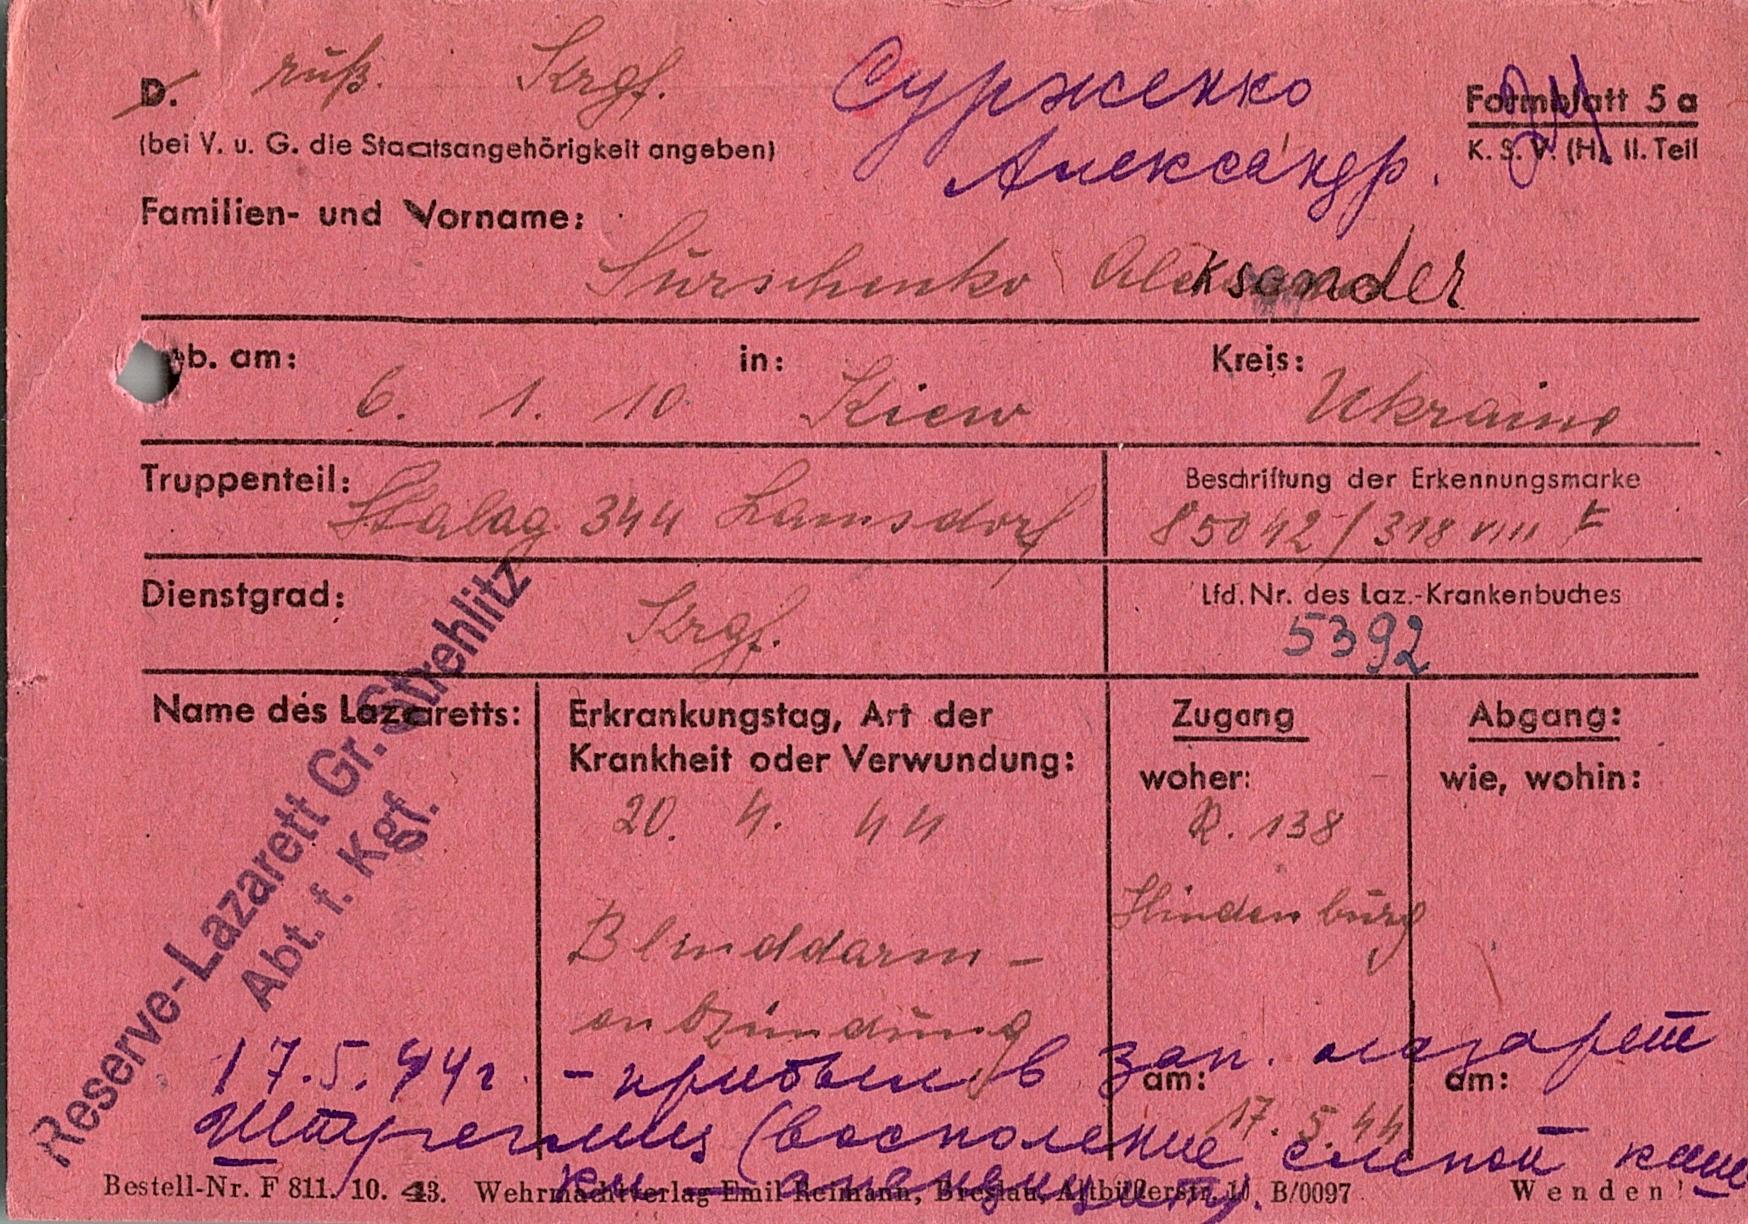 D. ruß. Krgf.
Сурженко
Александр.
Formblatt 5 a
K. S. V. (H. II. Teil
(bei V. u. G. die Staatsangehörigkeit angeben)
Familien- und Vorname:
Surschenko Aleksander
eb. am: 6. 1. 10 in: Kiew Kreis: Ukraine
Truppenteil: Stalag 344 Lamsdorf
Beschriftung der Erkennungsmarke
85042/318 VIII F
Dienstgrad: Krgf.
Lfd. Nr. des Laz.-Krankenbuches
5392
Name des Lazaretts:
Reserve-Lazarett Gr. Strehlitz
Abt. f. Kgf.
Erkrankungstag, Art der
Krankheit oder Verwundung:
20. 4. 44
Blinddarm-
entzündung
Zugang
woher:
R. 138
Hindenburg
am:
17. 5. 44
Abgang:
wie, wohin:
am:
17.5.44г. - прибыл в зап. лазарет
(воспаление слепой кишки
Bestell-Nr. F 811. 10. 43. Wehrmachtverlag Emil Reimann, Breslau, Altbüßerstr. 10. B/0097
Wenden!